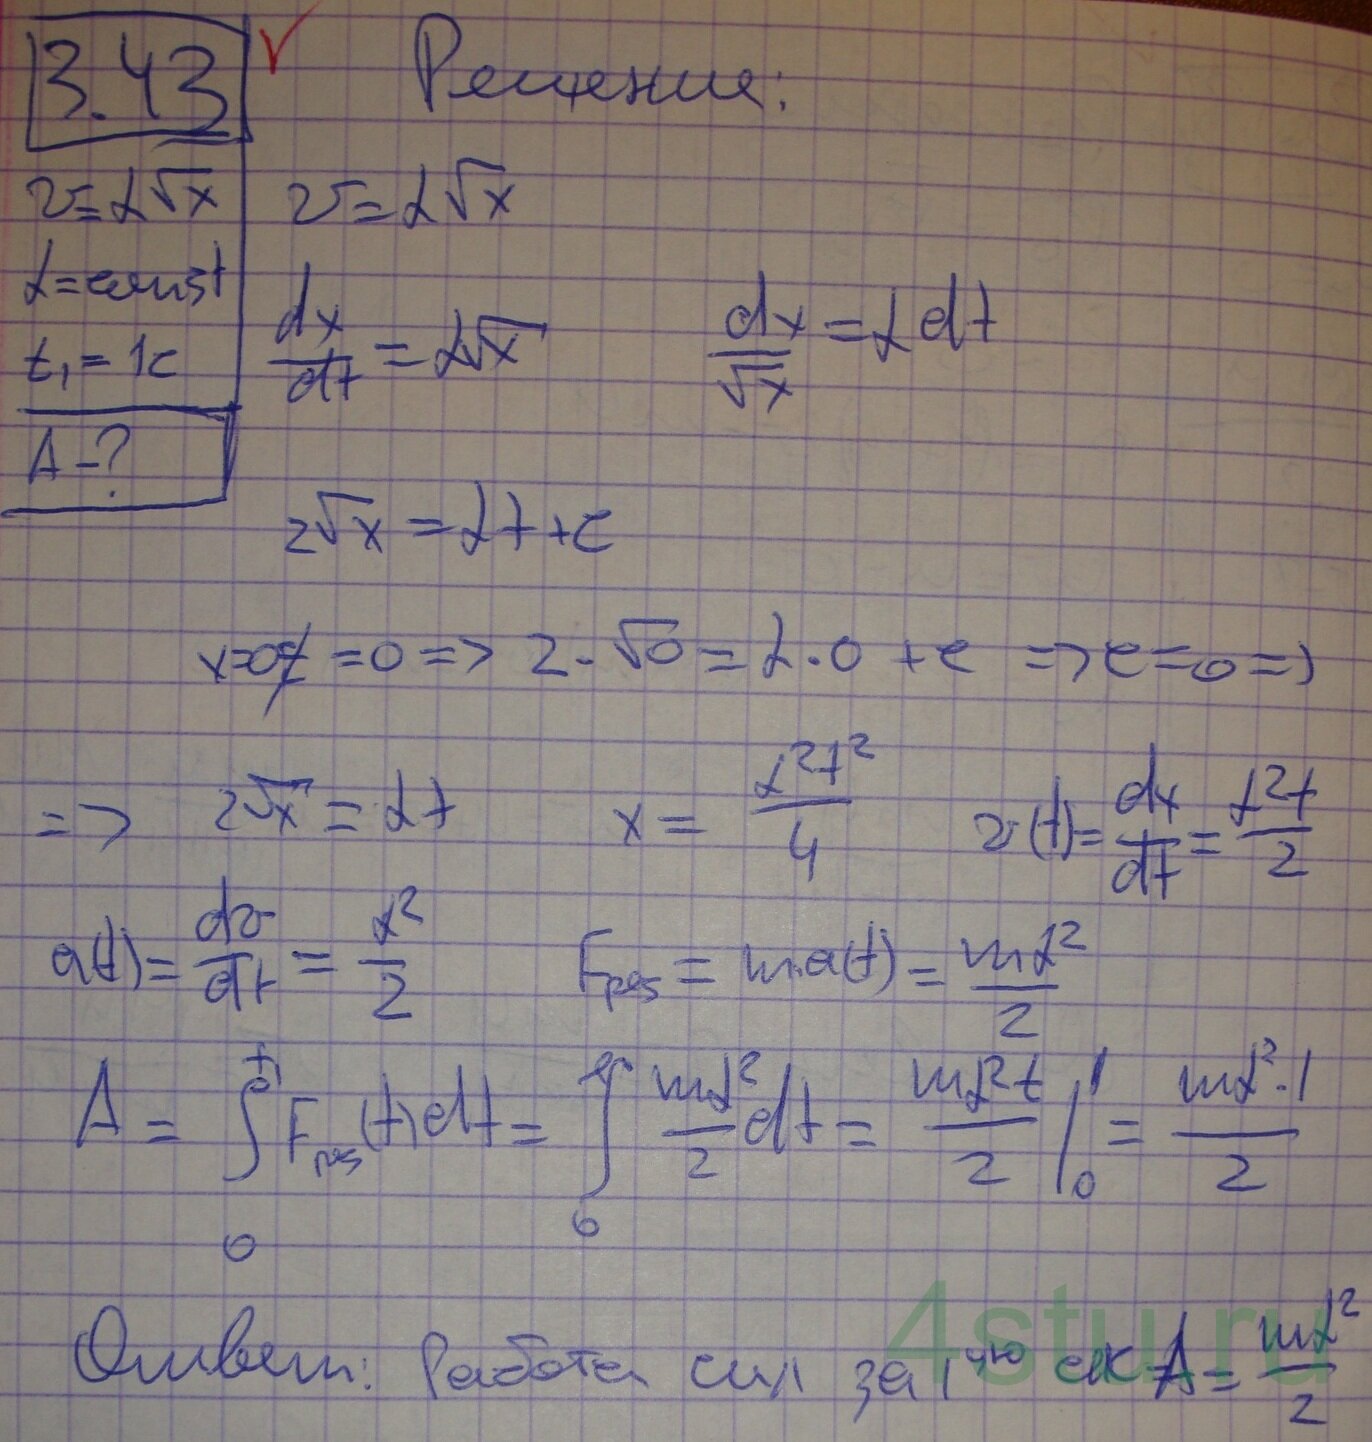 3.43 ✓ Решение:
v=α√x
α=const
t₁=1с
A-?
v=α√x
dx/dt=α√x dx/√x=αdt
2√x=αt+c
x=0 t=0=> 2·√0=α·0+c =>c=0=>
=> 2√x=αt x=α²t²/4 v(t)=dx/dt=α²t/2
a(t)=dv/dt=α²/2 Fрез=m·a(t)=mα²/2
A=∫₀^t₁ Fрез(t)dt=∫₀^t₁ mα²/2 dt=mα²t/2|₀¹=mα²·1/2
Ответ: Работа сил за 1ую сек A=mα²/2
4stu.ru